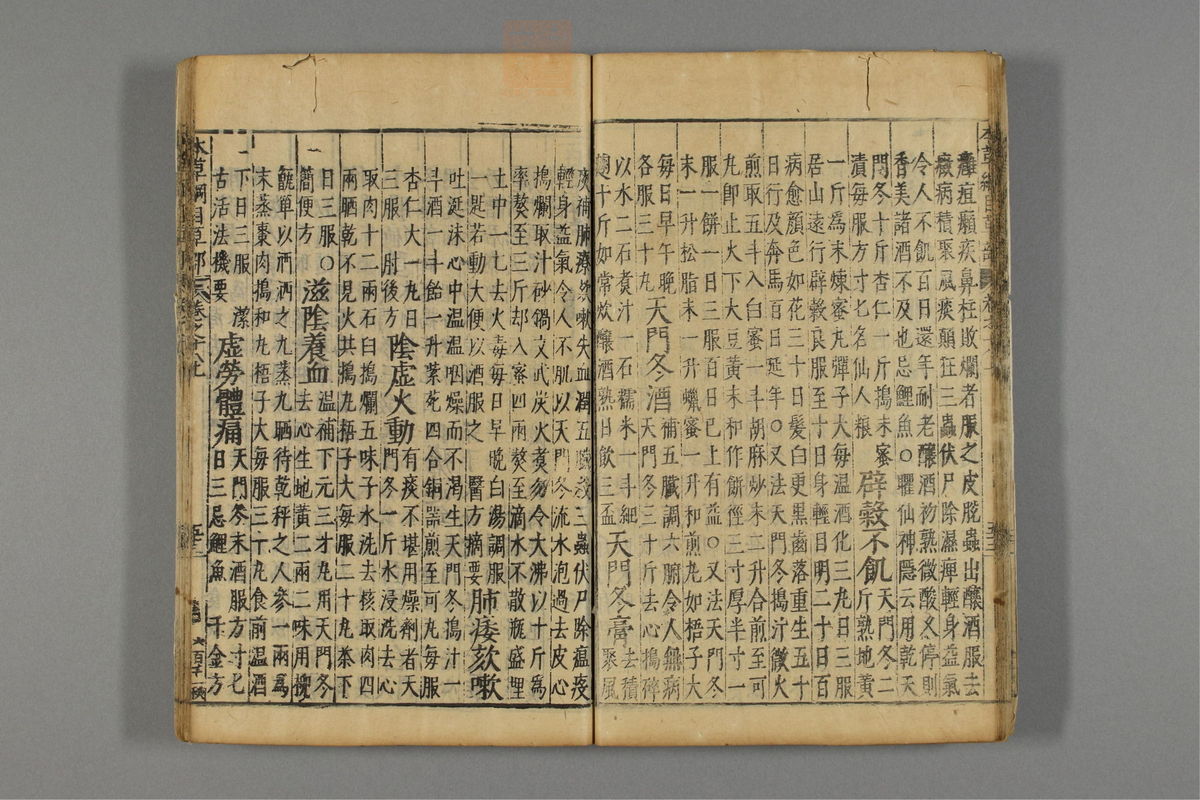 癰疽癩疾鼻柱敗爛者服之皮脫蟲出釀酒服去
癥病積聚風痰顛狂三蟲伏尸除濕痹輕身益氣
令人不飢百日還年耐老釀酒初熟微酸久停則
香美諸酒不及也忌鯉魚○臞仙神隱云用乾天
門冬十斤杏仁一斤搗末蜜
漬每服方寸匕名仙人粮
辟穀不飢
天門冬二
斤熟地黃
一斤爲末煉蜜丸彈子大每温酒化三丸日三服
居山遠行辟穀良服至十日身輕目明二十日百
病愈顏色如花三十日髮白更黑齒落重生五十
日行及奔馬百日延年○又法天門冬搗汁微火
煎取五斗入白蜜一斗胡麻炒末二升合煎至可
丸卽止火下大豆黃末和作餅徑三寸厚半寸一
服一餅一日三服百日已上有益○又法天門冬
末一升松脂末一升蠟蜜一升和煎丸如梧子大
每日早午晚
各服三十丸
天門冬酒
補五臟調六腑令人無病
天門冬三十斤去心搗碎
以水二石煮汁一石糯米一斗細
麴十斤如常炊釀酒熟日飲三盃
天門冬膏
去積
聚風
痰補肺療欬嗽失血潤五臟殺三蟲伏尸除瘟疫
輕身益氣令人不飢以天門冬流水泡過去皮心
搗爛取汁砂鍋文武炭火煮勿令大沸以十斤爲
率熬至三斤却入蜜四兩熬至滴水不散瓶盛埋
土中一七去火毒每日早晚白湯調服
一匙若動大便以酒服之 醫方摘要
肺痿欬嗽
吐涎沫心中温温咽燥而不渴生天門冬搗汁一
斗酒一斗飴一升紫菀四合銅器煎至可丸每服
杏仁大一丸日
三服 肘後方
陰虛火動
有痰不堪用燥劑者天
門冬一斤水浸洗去心
取肉十二兩石臼搗爛五味子水洗去核取肉四
兩晒乾不見火共搗丸梧子大每服二十丸茶下
日三服○
簡便方
滋陰養血
温補下元三才丸用天門冬
去心生地黃二兩二味用柳
甑箄以酒洒之九蒸九晒待乾秤之人參一兩爲
末蒸棗肉搗和丸梧子大每服三十丸食前温酒
下日三服 潔
古活法機要
虛勞體痛
天門冬末酒服方寸匕
日三忌鯉魚 千金方
本草綱目草部